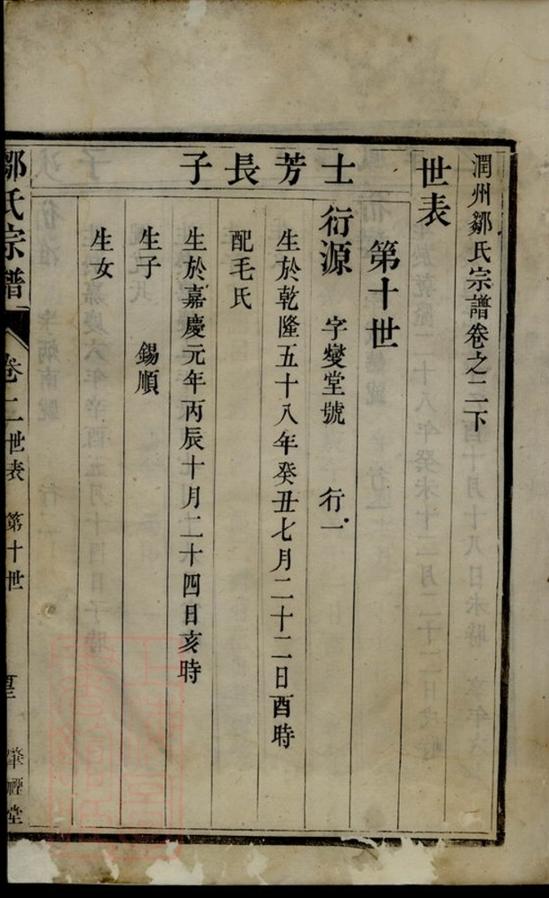 潤州鄒氏宗譜卷之二下
世表
第十世
士芳長子
衍源 字燮堂號 行一
生於乾隆五十八年癸丑七月二十二日酉時
配毛氏
生於嘉慶元年丙辰十月二十四日亥時
生子 錫順
生女
鄒氏宗譜 卷二 世表 第十世